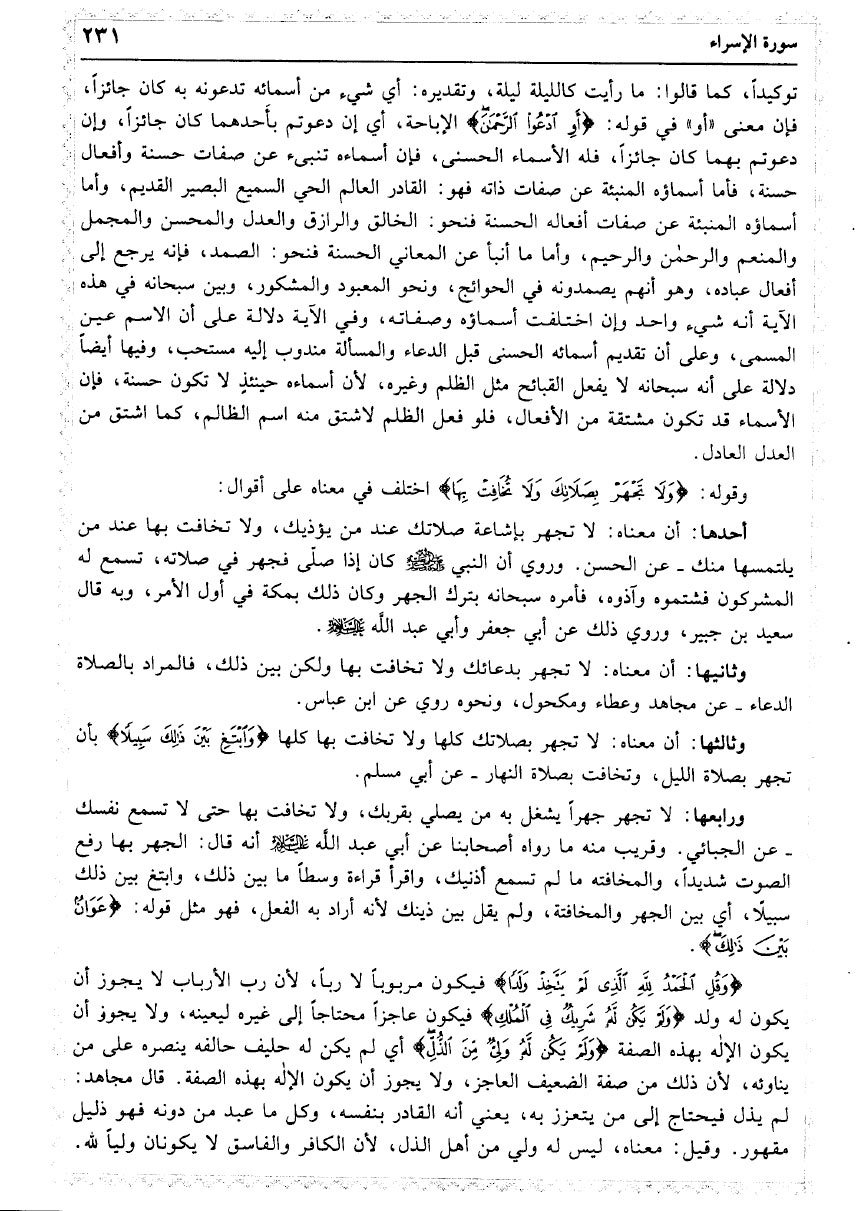 سورة الإسراء ٢٣١
توكيداً، كما قالوا: ما رأيت كالليلة ليلة، وتقديره: أي شيء من أسمائه تدعونه به كان جائزاً،
فإن معنى «أو» في قوله: ﴿أَوِ ٱدْعُوا۟ ٱلرَّحْمَـٰنَۖ﴾ الإباحة، أي إن دعوتم بأحدهما كان جائزاً، وإن
دعوتم بهما كان جائزاً، فله الأسماء الحسنى، فإن أسماءه تنبىء عن صفات حسنة وأفعال
حسنة، فأما أسماؤه المنبئة عن صفات ذاته فهو: القادر العالم الحي السميع البصير القديم، وأما
أسماؤه المنبئة عن صفات أفعاله الحسنة فنحو: الخالق والرازق والعدل والمحسن والمجمل
والمنعم والرحمٰن والرحيم، وأما ما أنبأ عن المعاني الحسنة فنحو: الصمد، فإنه يرجع إلى
أفعال عباده، وهو أنهم يصمدونه في الحوائج، ونحو المعبود والمشكور، وبين سبحانه في هذه
الآية أنه شيء واحد وإن اختلفت أسماؤه وصفاته، وفي الآية دلالة على أن الاسم عين
المسمى، وعلى أن تقديم أسمائه الحسنى قبل الدعاء والمسألة مندوب إليه مستحب، وفيها أيضاً
دلالة على أنه سبحانه لا يفعل القبائح مثل الظلم وغيره، لأن أسماءه حينئذٍ لا تكون حسنة، فإن
الأسماء قد تكون مشتقة من الأفعال، فلو فعل الظلم لاشتق منه اسم الظالم، كما اشتق من
العدل العادل.
وقوله: ﴿وَلَا تَجْهَرْ بِصَلَاتِكَ وَلَا تُخَافِتْ بِهَا﴾ اختلف في معناه على أقوال:
أحدها: أن معناه: لا تجهر بإشاعة صلاتك عند من يؤذيك، ولا تخافت بها عند من
يلتمسها منك ـ عن الحسن. وروي أن النبي ﷺ كان إذا صلّى فجهر في صلاته، تسمع له
المشركون فشتموه وآذوه، فأمره سبحانه بترك الجهر وكان ذلك بمكة في أول الأمر، وبه قال
سعيد بن جبير، وروي ذلك عن أبي جعفر وأبي عبد اللَّه عليه السلام.
وثانيها: أن معناه: لا تجهر بدعائك ولا تخافت بها ولكن بين ذلك، فالمراد بالصلاة
الدعاء ـ عن مجاهد وعطاء ومكحول، ونحوه روي عن ابن عباس.
وثالثها: أن معناه: لا تجهر بصلاتك كلها ولا تخافت بها كلها ﴿وَٱبْتَغِ بَيْنَ ذَٰلِكَ سَبِيلًا﴾ بأن
تجهر بصلاة الليل، وتخافت بصلاة النهار ـ عن أبي مسلم.
ورابعها: لا تجهر جهراً يشغل به من يصلي بقربك، ولا تخافت بها حتى لا تسمع نفسك
ـ عن الجبائي. وقريب منه ما رواه أصحابنا عن أبي عبد اللَّه عليه السلام أنه قال: الجهر بها رفع
الصوت شديداً، والمخافته ما لم تسمع أذنيك، واقرأ قراءة وسطاً ما بين ذلك، وابتغ بين ذلك
سبيلًا، أي بين الجهر والمخافتة، ولم يقل بين ذينك لأنه أراد به الفعل، فهو مثل قوله: ﴿عَوَانٌۢ
بَيْنَ ذَٰلِكَۖ﴾.
﴿وَقُلِ ٱلْحَمْدُ لِلَّهِ ٱلَّذِى لَمْ يَتَّخِذْ وَلَدًا﴾ فيكون مربوباً لا رباً، لأن رب الأرباب لا يجوز أن
يكون له ولد ﴿وَلَمْ يَكُن لَّهُۥ شَرِيكٌ فِى ٱلْمُلْكِ﴾ فيكون عاجزاً محتاجاً إلى غيره ليعينه، ولا يجوز أن
يكون الإلٰه بهذه الصفة ﴿وَلَمْ يَكُن لَّهُۥ وَلِىٌّ مِّنَ ٱلذُّلِّۖ﴾ أي لم يكن له حليف حالفه ينصره على من
يناوئه، لأن ذلك من صفة الضعيف العاجز، ولا يجوز أن يكون الإلٰه بهذه الصفة. قال مجاهد:
لم يذل فيحتاج إلى من يتعزز به، يعني أنه القادر بنفسه، وكل ما عبد من دونه فهو ذليل
مقهور. وقيل: معناه، ليس له ولي من أهل الذل، لأن الكافر والفاسق لا يكونان ولياً لله.